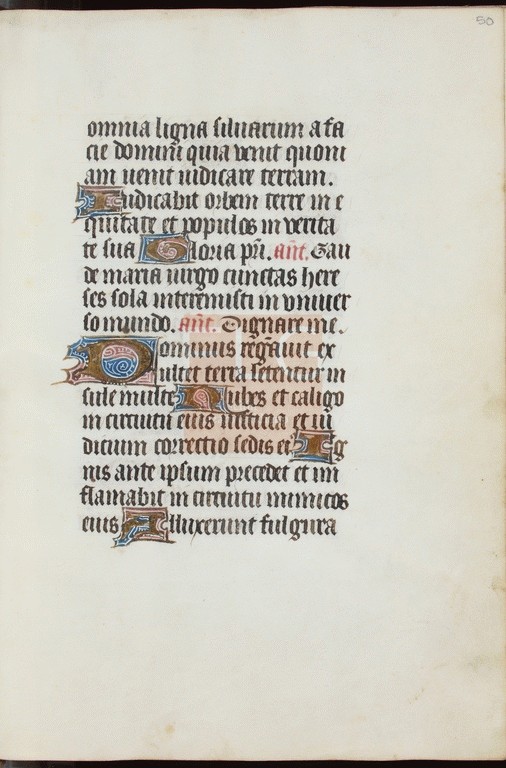 50
omnia ligna siluarum a fa
cie domini quia venit quoni
am uenit iudicare terram.
Iudicabit orbem terre in e
quitate et populos in verita
te sua Gloria pri. ant. Gau
de maria uirgo cunctas here
ses sola interemisti in vniuer
so mundo. ant. Dignare me.
Dominus regnauit ex
ultet terra letentur in
sule multe Nubes et caligo
in circuitu eius iusticia et iu
dicium correctio sedis ei9 Ig
nis ante ipsum precedet et in
flamabit in circuitu inimicos
eius Alluxerunt fulgura